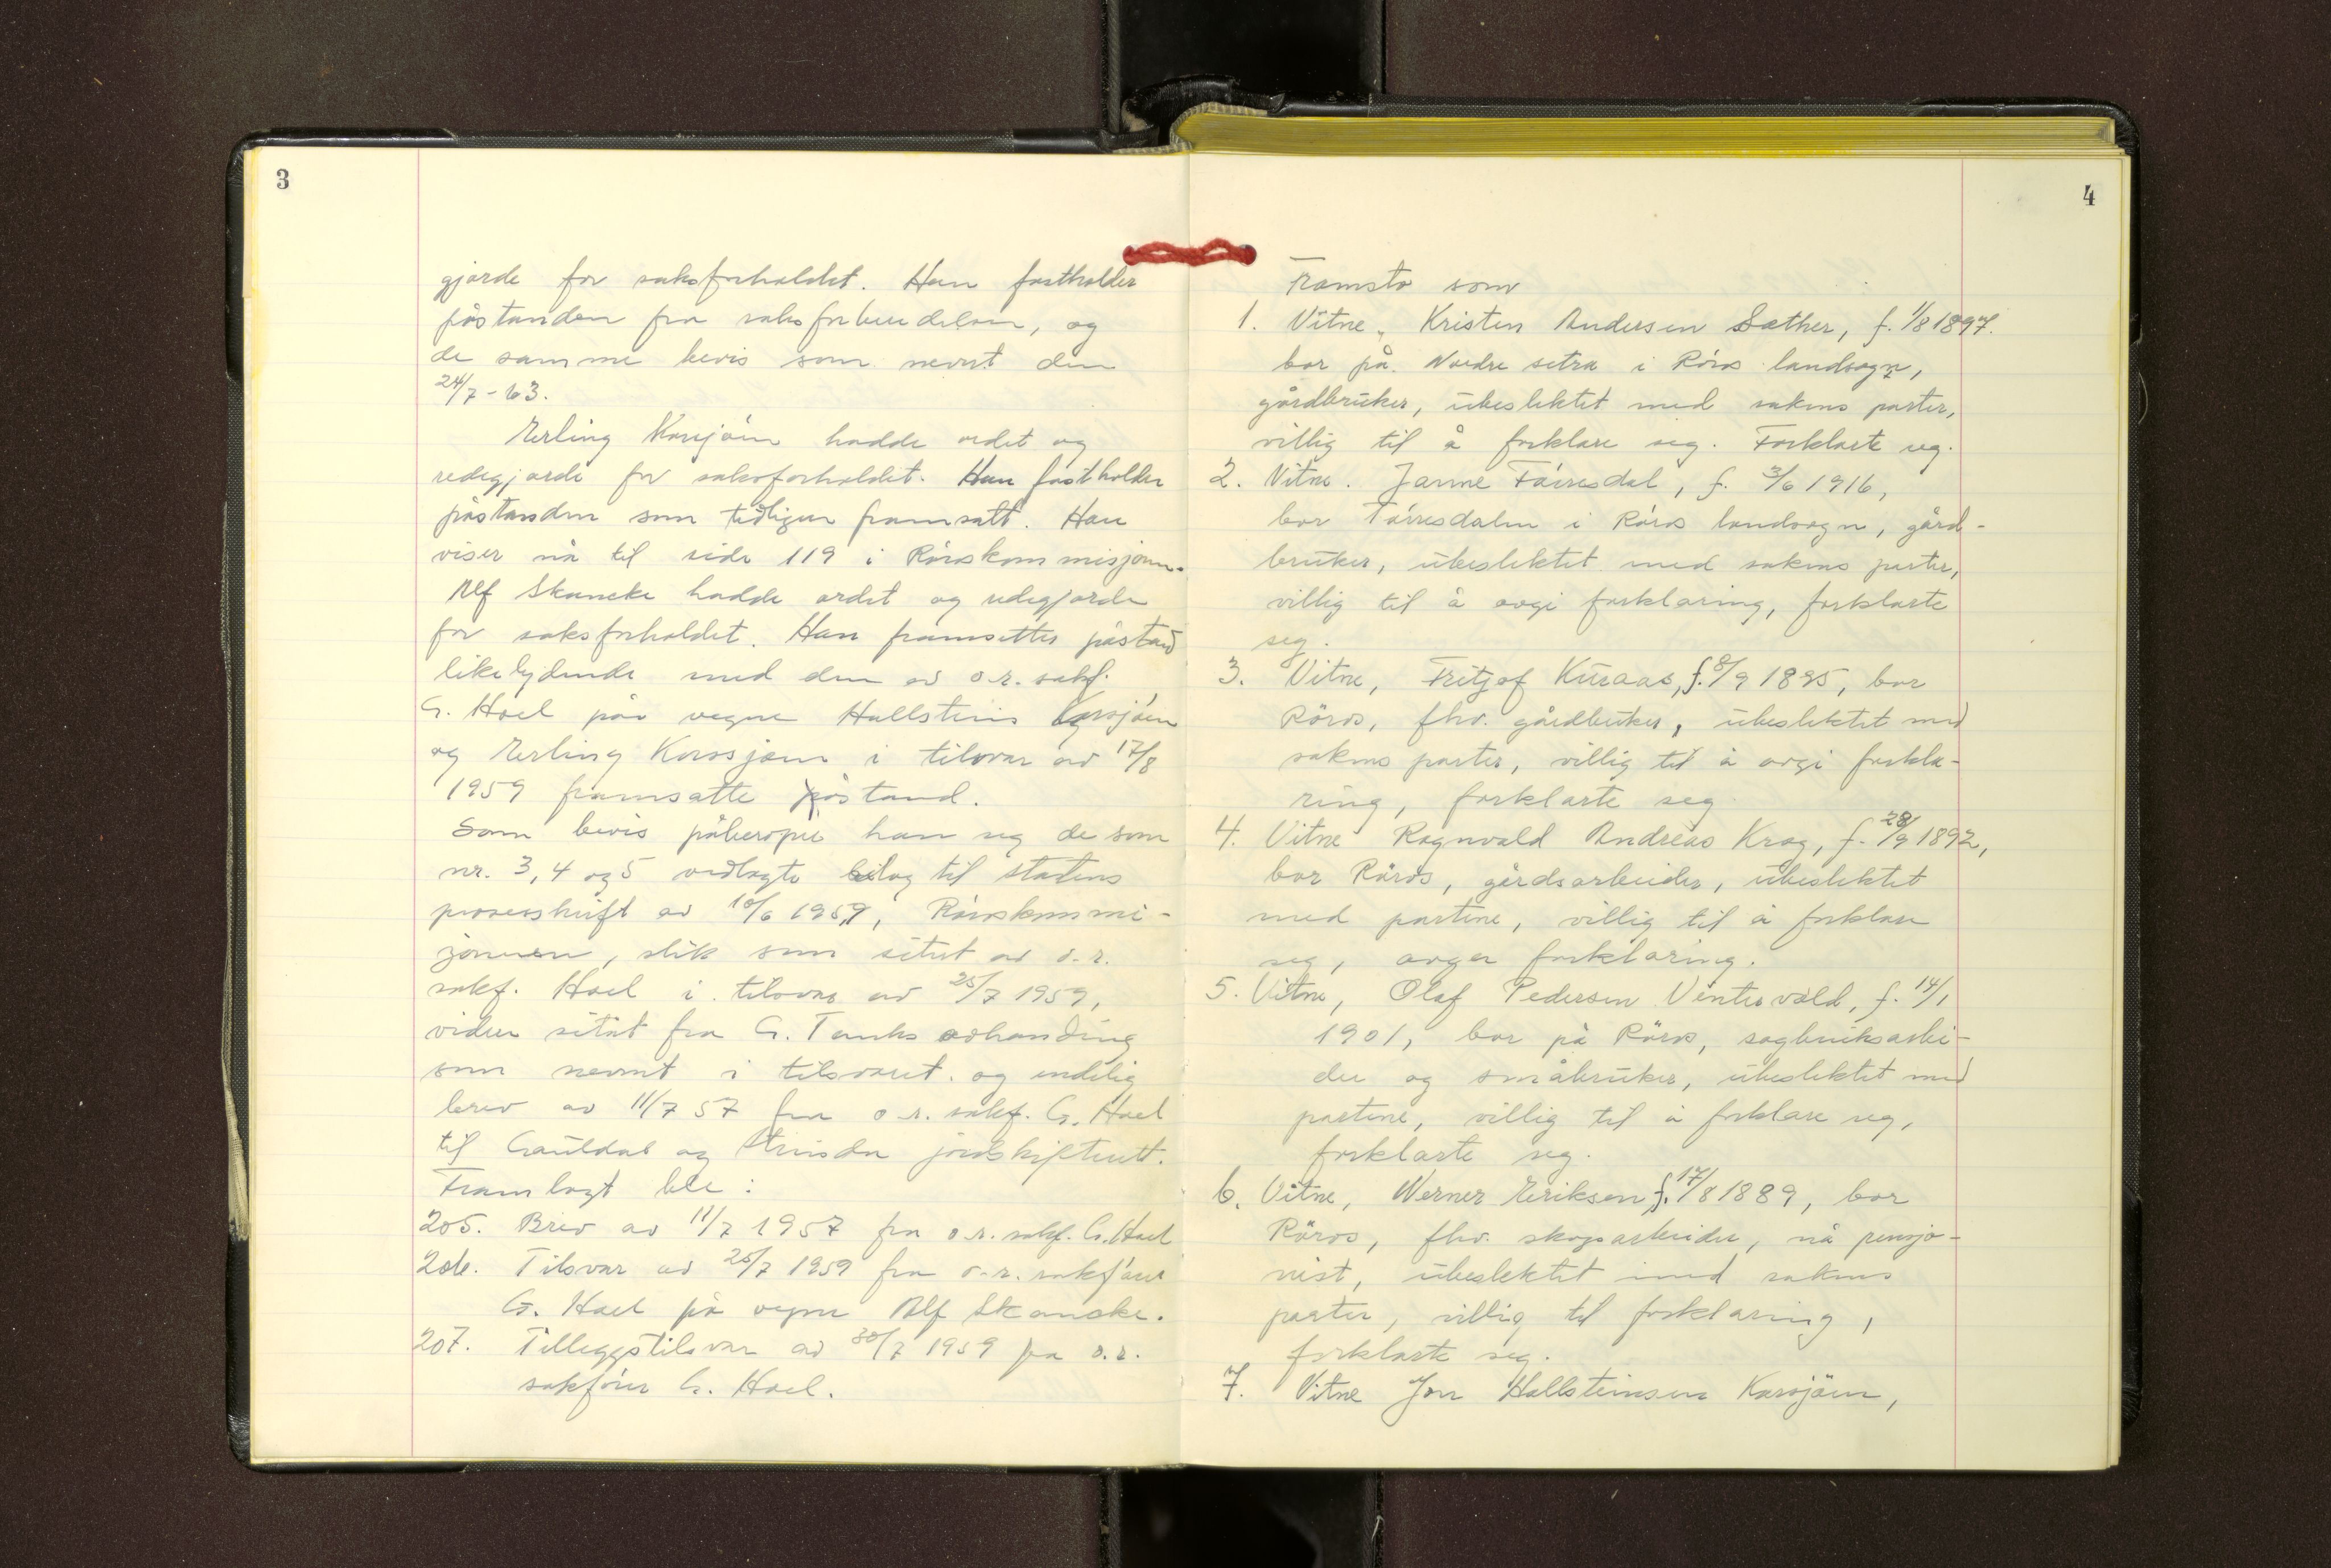 3
gjorde for saksforholdet. Han fastholder
påstanden fra saksforberedelsen, og
de samme bevis som nevnt den
24/7-63.
Erling Korsjöen hadde ordet og
redegjorde for saksforholdet. Han fastholder
påstanden som tidligere framsatt. Han
viser nå til side 119 i Röroskommisjonen.
Alf Skancke hadde ordet og redegjorde
for saksforholdet. Han framsetter påstand
likelydende med den av o.r. sakf.
G. Hoel på vegne Hallstein Korssjöen
og Erling Korssjöen i tilsvar av 17/8
1959 framsatte påstand.
Som bevis påberoper han seg de som
nr. 3, 4 og 5 vedlagte bilag til statens
prosesskrift av 10/6 1959, Röroskommi-
sjonen, slik som sitert av o.r.
sakf. Hoel i tilsvar av 25/7 1959,
videre sitat fra G. Tanks avhanding
som nevnt i tilsvaret og endelig
brev av 11/7 57 fra o.r. sakf. G. Hoel
til Gauldal og Strinda jordskifterett.
Framlagt ble:
205. Brev av 11/7 1957 fra o.r. sakf. G. Hoel
206. Tilsvar av 25/7 1959 fra o.r. sakförer
G. Hoel på vegne Alf Skancke.
207. Tilleggstilsvar av 30/7 1959 fra o.r.
sakförer G. Hoel.
4
Framsto som
1. Vitne, Kristen Andersen Sæther, f. 1/8 1897.
bor på Nordre setra i Röros landsogn,
gårdbruker, ubeslektet med sakens parter,
villig til å forklare seg. Forklarte seg.
2. Vitne. Janne Fåresdal, f. 3/6 1916,
bor Fåresdalen i Röros landsogn, gård-
bruker, ubeslektet med sakens parter,
villig til å avgi forklaring, forklarte
seg.
3. Vitne, Fritjof Kuraas, f. 8/9 1895, bor
Röros, fhv. gårdbruker, ubeslektet med
sakens parter, villig til å avgi forkla-
ring, forklarte seg
4. Vitne Ragnvald Andreas Krog, f. 28/9 1892,
bor Röros, gårdsarbeider, ubeslektet
med partene, villig til å forklare
seg, avga forklaring.
5. Vitne, Olaf Pedersen Vintervold, f. 14/1
1901, bor på Röros, sagbruksarbei-
der og småbruker, ubeslektet med
partene, villig til å forklare seg,
forklarte seg.
6. Vitne, Werner Eriksen f. 17/8 1889, bor
Röros, fhv. skogsarbeider, nå pensjo-
nist, ubeslektet med sakens
parter, villig til forklaring,
forklarte seg.
7. Vitne Jon Hallsteinsen Korsjöen,